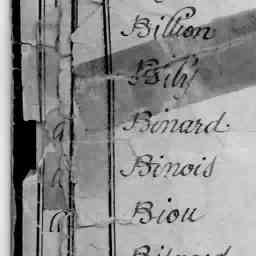 Billion
Bily
Binard
Binois
Biou